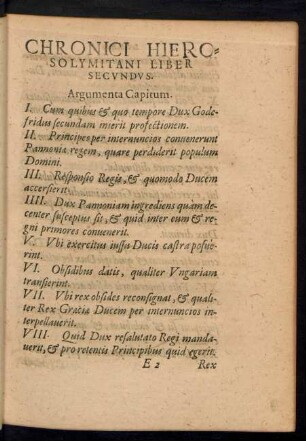 CHRONICI HIERO-
SOLYMITANI LIBER
SECVNDVS.
Argumenta Capitum.
I. Cum quibus & quo tempore Dux Gode-
fridus secundam inierit profectionem.
II. Principes per internuncios conuenerunt
Pannoniæ regem, quare perdiderit populum
Domini.
III. Responsio Regis, & quomodo Ducem
accersierit.
IIII. Dux Pannoniam ingrediens quàm de-
center susceptus sit, & quid inter eum & re-
gni primores conuenerit.
V. Vbi exercitus iussu Ducis castra posue-
rint.
VI. Obsidibus datis, qualiter Vngariam
transierint.
VII. Vbi rex obsides reconsignat, & quali-
ter Rex Græciæ Ducem per internuncios in-
terpellauerit.
VIII. Quid Dux resalutato Regi manda-
uerit, & pro retentis Principibus quid egerit.
E 2 Rex